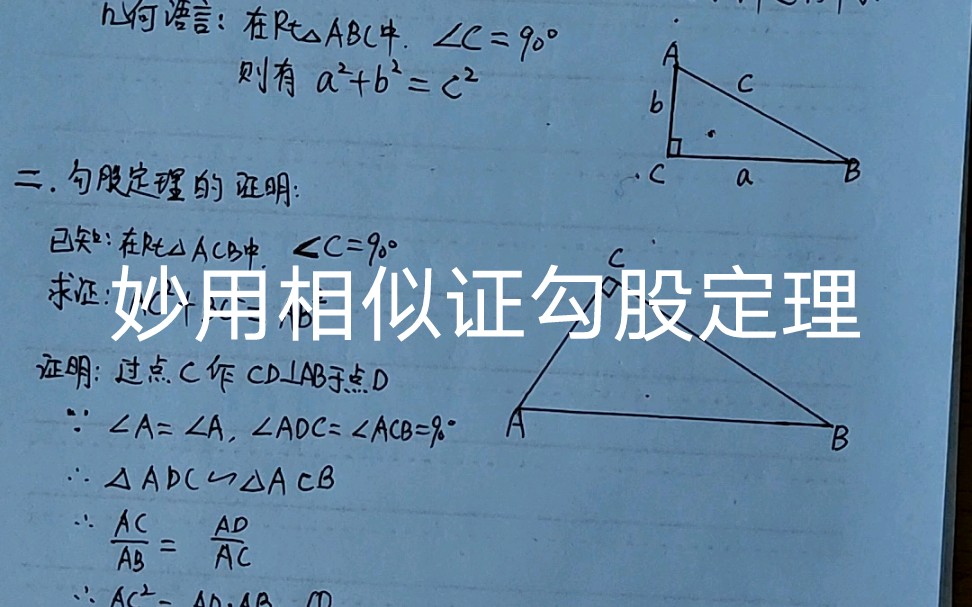 几何语言：在Rt△ABC中．∠C=90°
则有 a²+b²=c²
A
c
b
C
a
B
二．勾股定理的证明：
已知：在Rt△ACB中，∠C=90°
求证：AC²+
妙用相似证勾股定理
C
A
B
证明：过点C作CD⊥AB于点D
∵ ∠A=∠A，∠ADC=∠ACB=90°
∴ △ADC∽△ACB
∴ AC/AB = AD/AC
∴ AC²=AD·AB ①